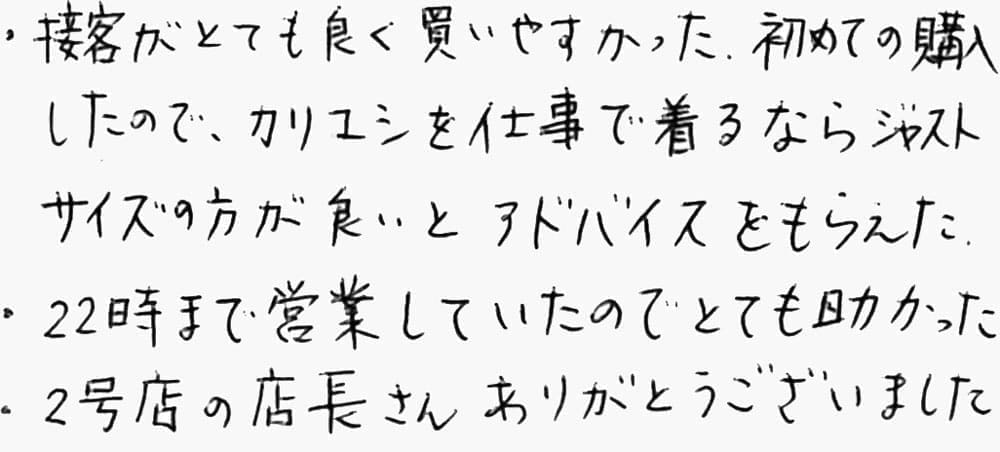 ・接客がとても良く買いやすかった. 初めての購入
したので、カリユシを仕事で着るならジャスト
サイズの方が良いと アドバイスをもらえた.
・22時まで営業していたのでとても助かった
・2号店の店長さん ありがとうございました